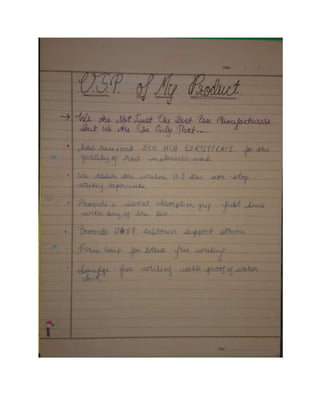 Date
U.S.P. of My Product.
→ We Are Not Just The Best Pen Manufacturers
But We Are The Only That....
• has received ECO MARK CERTIFICATE for the
quality of raw materials used
• We non-stop
writing experience
• Provide a sweat absorption grip - first time
with any of the pen
• Provides 24x7 customer support
• Firm Grip for stress free writing
• Smudge-free writing with proof of water